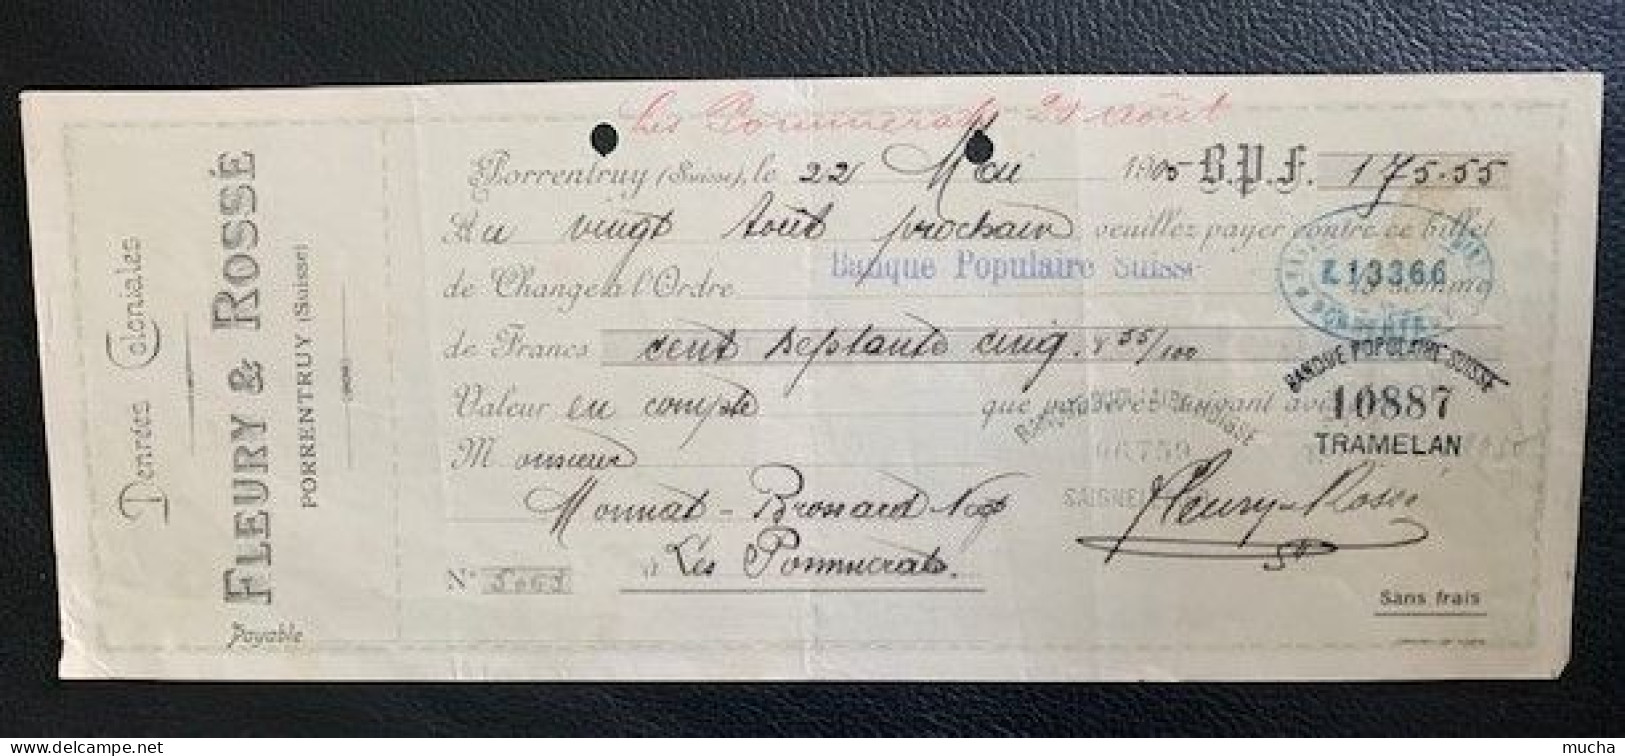 Les Pommerats 20 août
Porrentruy (Suisse), le 22 Mai 1905 B.P.F. 175.55
Au vingt Août prochain veuillez payer contre ce billet
de Change à l'Ordre Banque Populaire Suisse la somme
de Francs cent septante cinq. & 55/100
Valeur en compte que passerez suivant avis
Monsieur
Monnat-Brossard Nég
à Les Pommerats.
No 5063
Denrées Coloniales
FLEURY & ROSSÉ
PORRENTRUY (Suisse)
Payable
13366
BANQUE POPULAIRE SUISSE
10887
TRAMELAN
66759
SAIGNEL
Fleury-Rossé
Sans frais
mucha